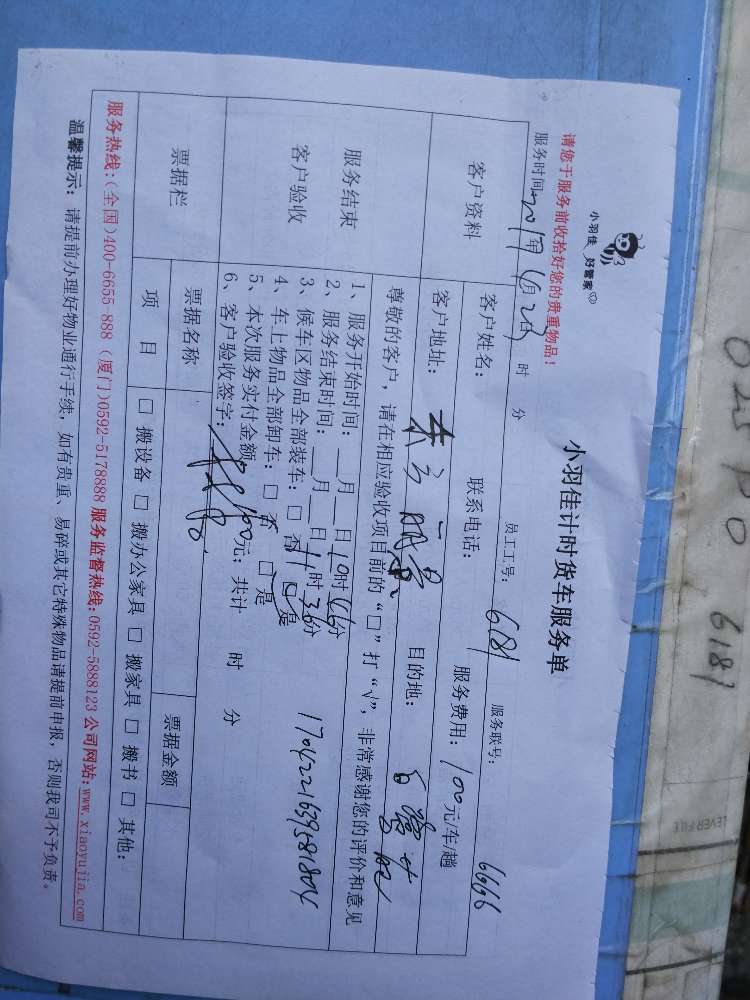 小羽佳 好管家
小羽佳计时货车服务单
请您于服务前收拾好您的贵重物品!
服务时间: 2017年 4月23日 时 分 员工工号: 6181 服务联号: 6666
客户资料
客户姓名: 联系电话: 服务费用: 100元/车/趟
客户地址: 目的地:
服务结束
客户验收
尊敬的客户,请在相应验收项目前的“□”打“√”,非常感谢您的评价和意见
1、服务开始时间: 月 日10时06分
2、服务结束时间: 月 日11时36分
3、候车区物品全部装车: □ 否 □ 是
4、车上物品全部卸车: □ 否 □ 是
5、本次服务实付金额: 100元; 共计 时 分
6、客户验收签字:
1704221639581804
票据栏
票据名称 票据金额
项 目 □ 搬设备 □ 搬办公家具 □ 搬家具 □ 搬书 □ 其他:
服务热线:(全国)400-6655 888 (厦门)0592-5178888 服务监督热线:0592-5888123 公司网站:www.xiaoyujia.com
温馨提示: 请提前办理好物业通行手续,如有贵重、易碎或其它特殊物品请提前申报,否则我司不予负责。
6181
LEVER FILE